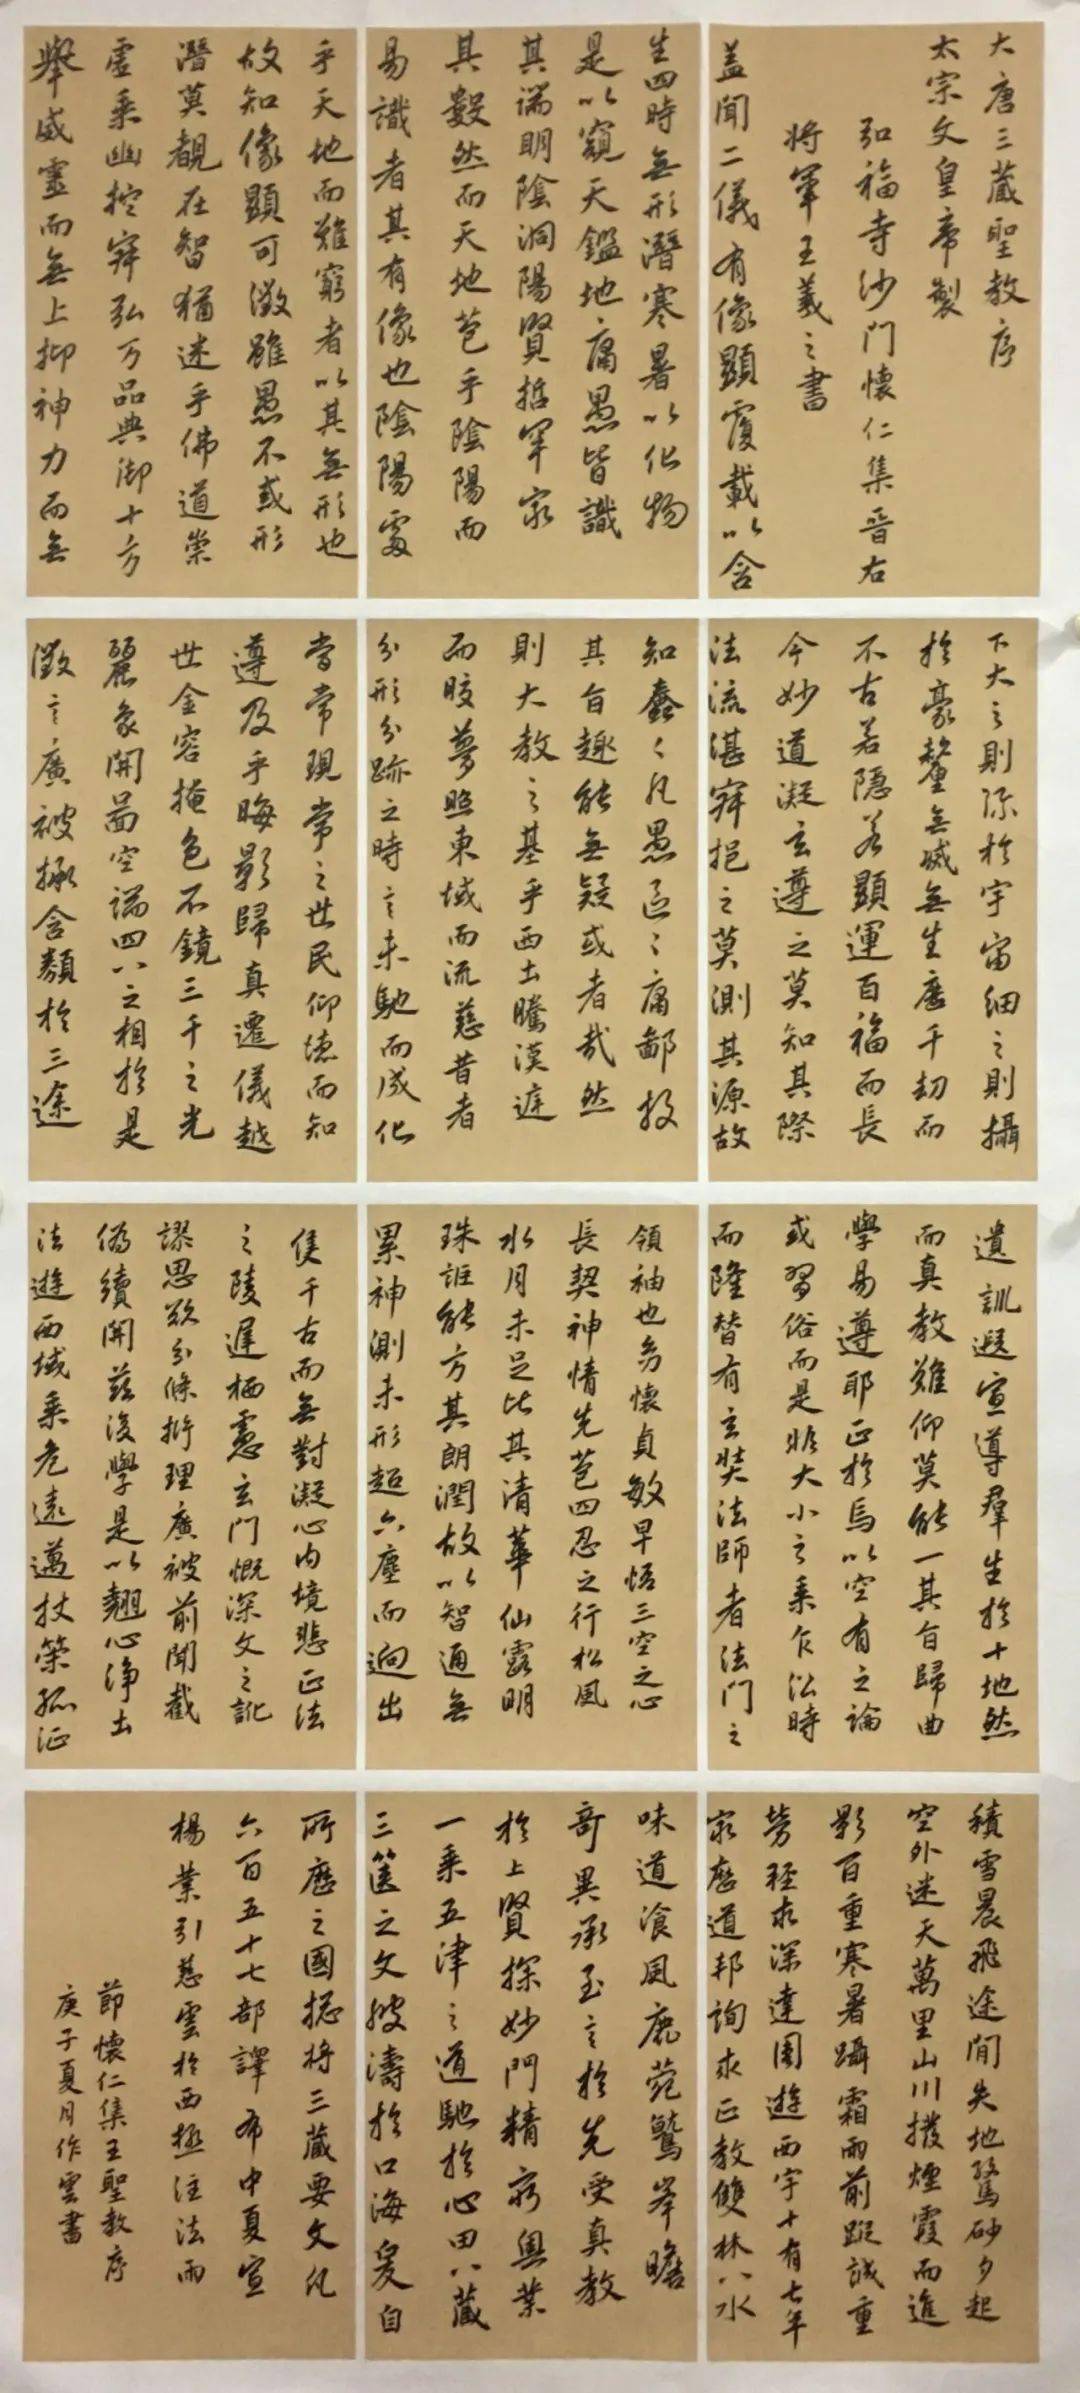 大唐三藏聖教序
太宗文皇帝製
弘福寺沙門懷仁集晉右
將軍王羲之書
蓋聞二儀有像顯覆載以含
生四時無形潛寒暑以化物
是以窺天鑑地庸愚皆識
其端明陰洞陽賢哲罕窮
其數然而天地苞乎陰陽而
易識者其有像也陰陽處
乎天地而難窮者以其無形也
故知像顯可徵雖愚不惑形
潛莫覩在智猶迷乎佛道崇
虛乘幽控寂弘万品典御十方
舉威靈而無上抑神力而無
下大之則彌於宇宙細之則攝
於豪釐無滅無生歷千劫而
不古若隱若顯運百福而長
今妙道凝玄遵之莫知其際
法流湛寂挹之莫測其源故
知蠢〻凡愚區〻庸鄙投
其旨趣能無疑或者哉然
則大教之基乎西土騰漢庭
而皎夢照東域而流慈昔者
分形分跡之時言未馳而成化
當常現常之世民仰德而知
遵及乎晦影歸真遷儀越
世金容掩色不鏡三千之光
麗象開圖空端四八之相於是
微言廣被拯含類於三途
遺訓遐宣導羣生於十地然
而真教難仰莫能一其旨歸曲
學易遵耶正於焉以空有之論
或習俗而是非大小之乘乍沿時
而隆替有玄奘法師者法門之
領袖也幼懷貞敏早悟三空之心
長契神情先苞四忍之行松風
水月未足比其清華仙露明
珠詎能方其朗潤故以智通無
累神測未形超六塵而迥出
隻千古而無對凝心內境悲正法
之陵遲栖慮玄門慨深文之訛
謬思欲分條析理廣被前聞截
偽續開茲後學是以翹心淨土
法遊西域乘危遠邁杖策孤征
積雪晨飛途閒失地驚砂夕起
空外迷天萬里山川撥煙霞而進
影百重寒暑躡霜雨前蹤誠重
勞輕求深達周遊西宇十有七年
窮歷道邦詢求正教雙林八水
味道飡風鹿菀鷲峯瞻
奇異承至言於先受真教
於上賢探妙門精窮奧業
一乘五津之道馳於心田八藏
三篋之文波濤於口海爰自
所歷之國揔將三藏要文凡
六百五十七部譯布中夏宣
楊業引慈雲於西極注法雨
節懷仁集王聖教序
庚子夏月作雲書